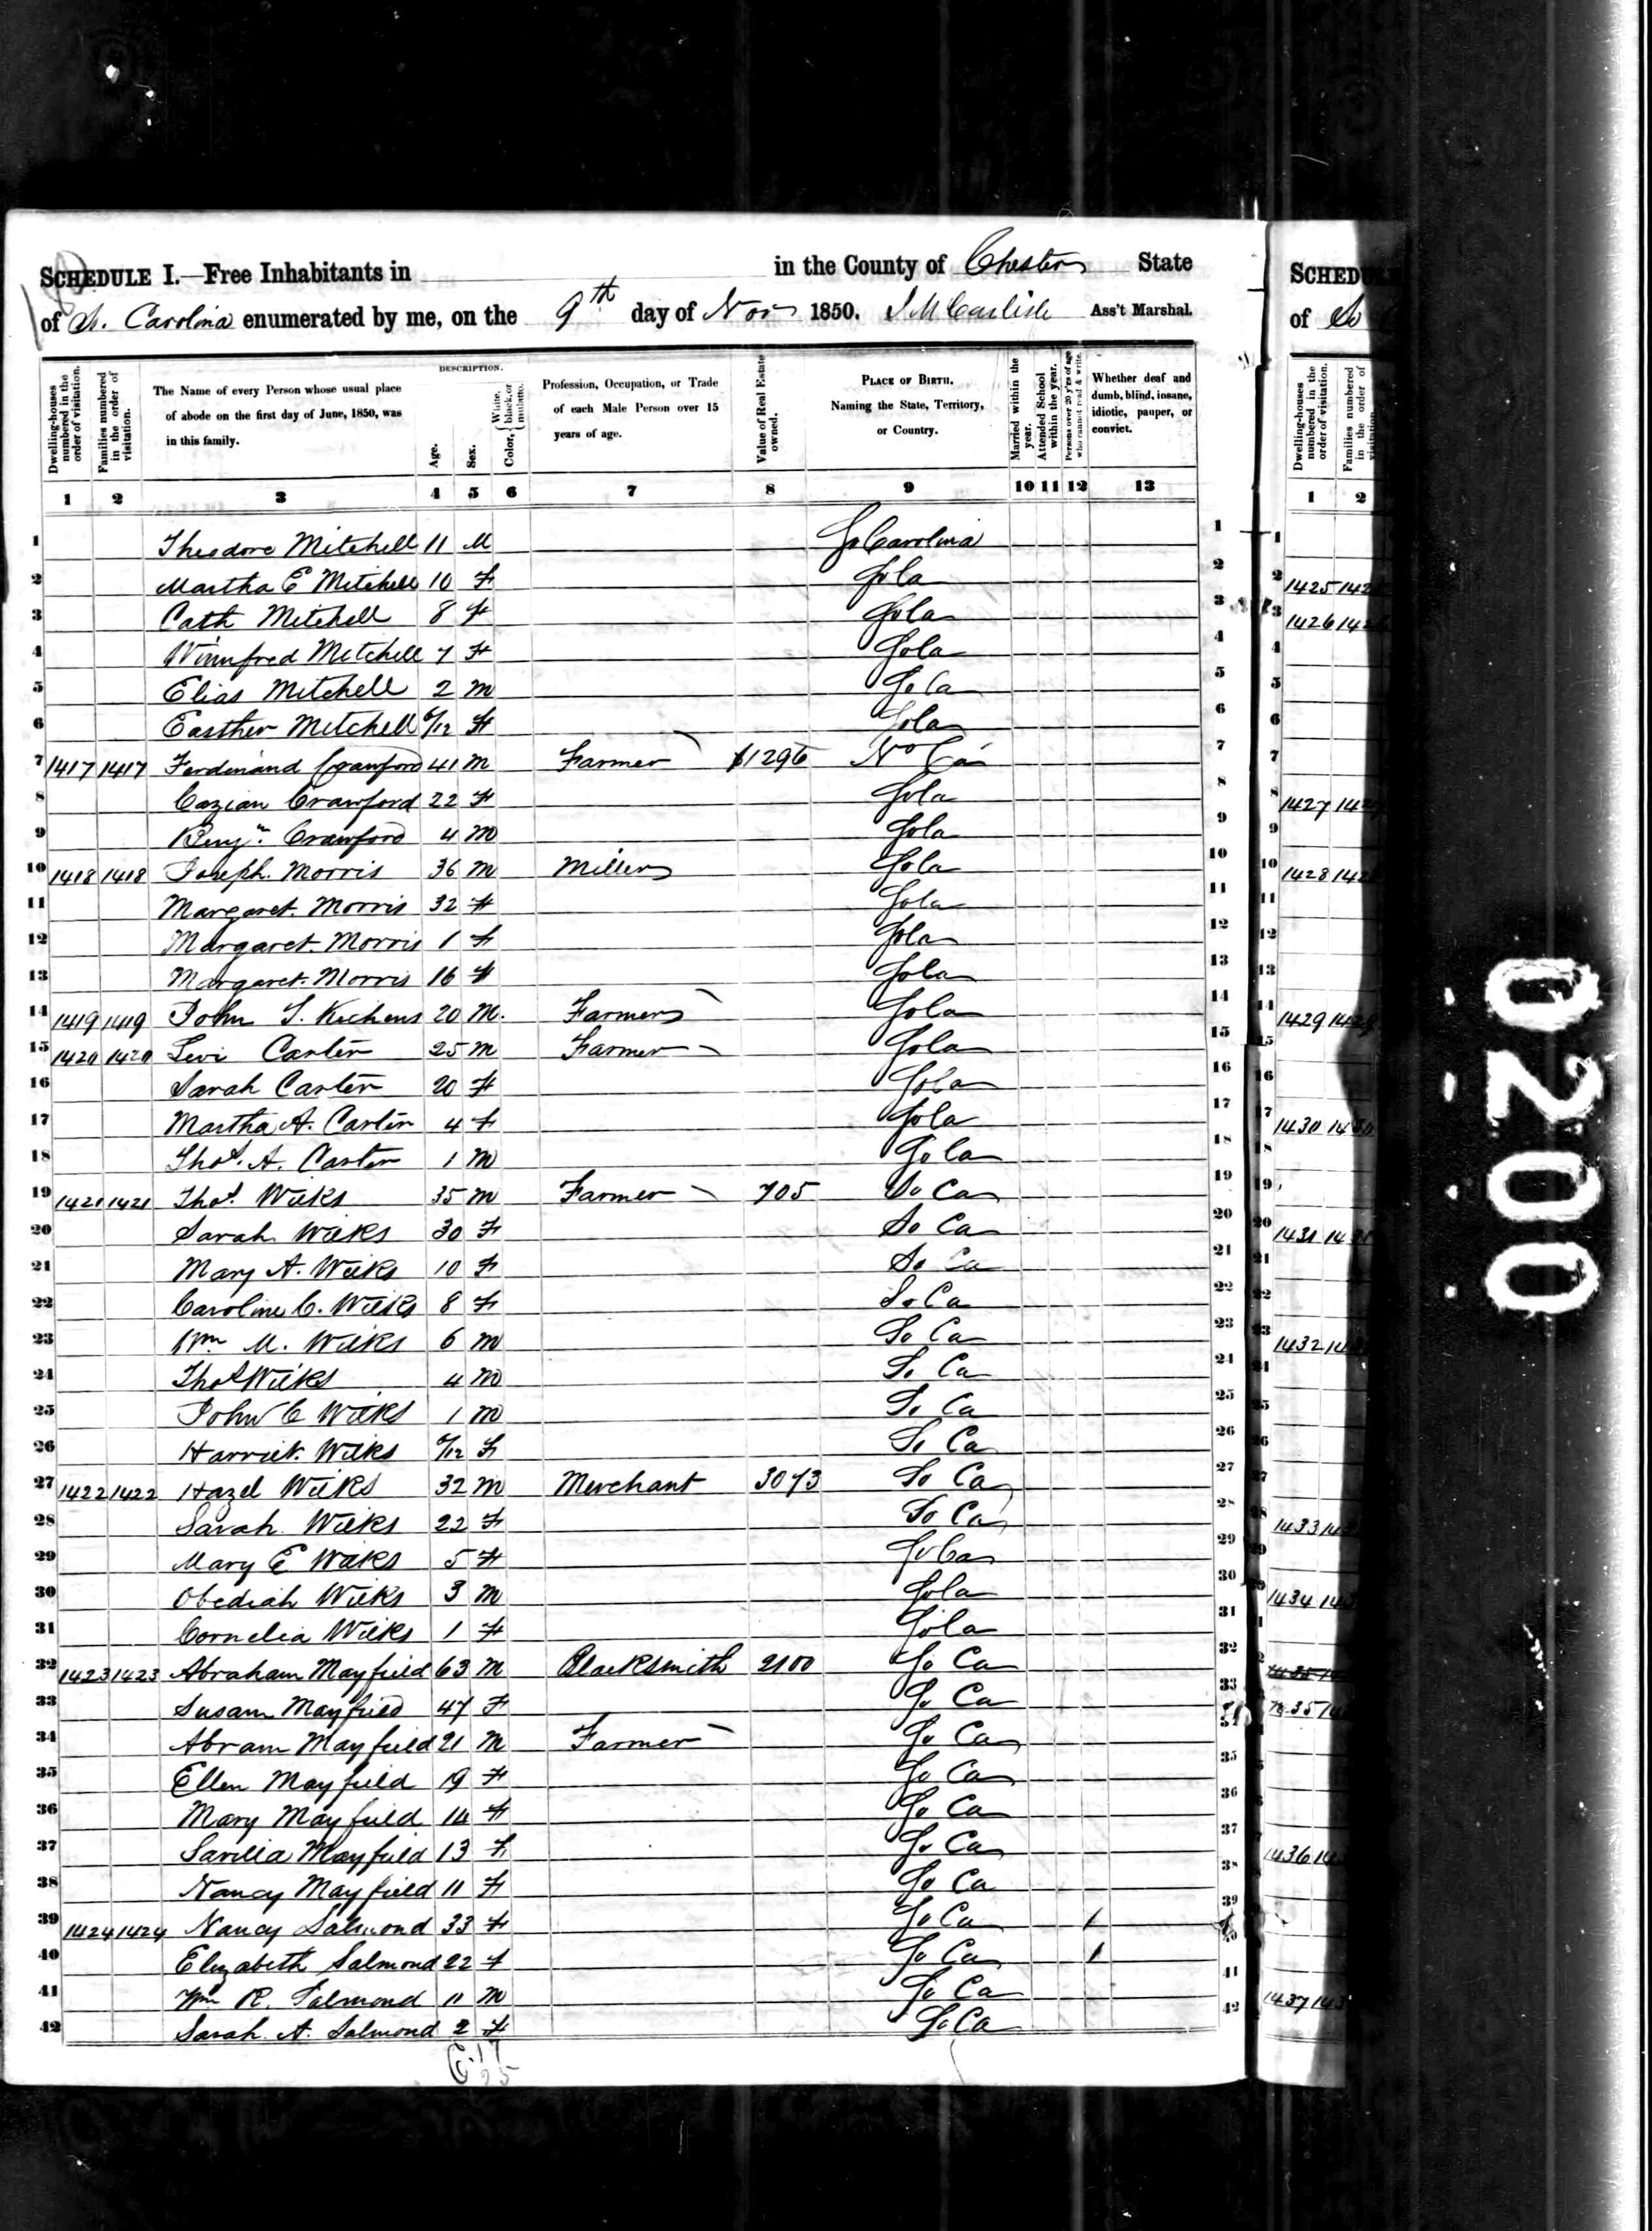 SCHEDULE I.—Free Inhabitants in in the County of Chester State
of So. Carolina enumerated by me, on the 9th day of Nov 1850. J M Carlisle Ass't Marshal.
Dwelling-houses numbered in the order of visitation.
Families numbered in the order of visitation.
The Name of every Person whose usual place of abode on the first day of June, 1850, was in this family.
DESCRIPTION.
Age.
Sex.
Color, { White, black, or mulatto.
Profession, Occupation, or Trade of each Male Person over 15 years of age.
Value of Real Estate owned.
PLACE OF BIRTH. Naming the State, Territory, or Country.
Married within the year.
Attended School within the year.
Persons over 20 y'rs of age who cannot read & write.
Whether deaf and dumb, blind, insane, idiotic, pauper, or convict.
1 2 3 4 5 6 7 8 9 10 11 12 13
1 Theodore Mitchell 11 M So Carolina 1
2 Martha E Mitchell 10 F So Ca 2
3 Cath Mitchell 8 F So Ca 3
4 Winnfred Mitchell 7 F So Ca 4
5 Elias Mitchell 2 M So Ca 5
6 Easther Mitchell 6/12 F So Ca 6
7 1417 1417 Ferdinand Crawford 41 M Farmer $1296 No Ca 7
8 Cazian Crawford 22 F So Ca 8
9 Benjn. Crawford 4 M So Ca 9
10 1418 1418 Joseph Morris 36 M Miller So Ca 10
11 Margaret Morris 32 F So Ca 11
12 Margaret Morris 1 F So Ca 12
13 Margaret Morris 16 F So Ca 13
14 1419 1419 John S. Kechens 20 M. Farmer So Ca 14
15 1420 1420 Levi Carter 25 M Farmer So Ca 15
16 Sarah Carter 20 F So Ca 16
17 Martha A. Carter 4 F So Ca 17
18 Thos. A. Carter 1 M So Ca 18
19 1421 1421 Thos. Wilks 35 M Farmer 705 So Ca 19
20 Sarah Wilks 30 F So Ca 20
21 Mary A. Wilks 10 F So Ca 21
22 Caroline C. Wilks 8 F So Ca 22
23 Wm M. Wilks 6 M So Ca 23
24 Thos Wilks 4 M So Ca 24
25 John C Wilks 1 M So Ca 25
26 Harriet Wilks 6/12 F So Ca 26
27 1422 1422 Hazel Wilks 32 M Merchant 3073 So Ca 27
28 Sarah Wilks 22 F So Ca 28
29 Mary E Wilks 5 F So Ca 29
30 Obediah Wilks 3 M So Ca 30
31 Cornelia Wilks 1 F So Ca 31
32 1423 1423 Abraham Mayfield 63 M Blacksmith 2100 So Ca 32
33 Susan Mayfield 47 F So Ca 33
34 Abram Mayfield 21 M Farmer So Ca 34
35 Ellen Mayfield 19 F So Ca 35
36 Mary Mayfield 14 F So Ca 36
37 Savilla Mayfield 13 F So Ca 37
38 Nancy Mayfield 11 F So Ca 38
39 1424 1424 Nancy Salmond 33 F So Ca / 39
40 Elizabeth Salmond 22 F So Ca / 40
41 Wm R. Salmond 11 M So Ca 41
42 Sarah A. Salmond 2 F So Ca 42
SCHED
of So
Dwelling-houses numbered in the order of visitation.
Families numbered in the order of
1 2
1425
1426
1427
1428
1429
1430
1431
1432
1433
1434
1435
1436
1437
0200